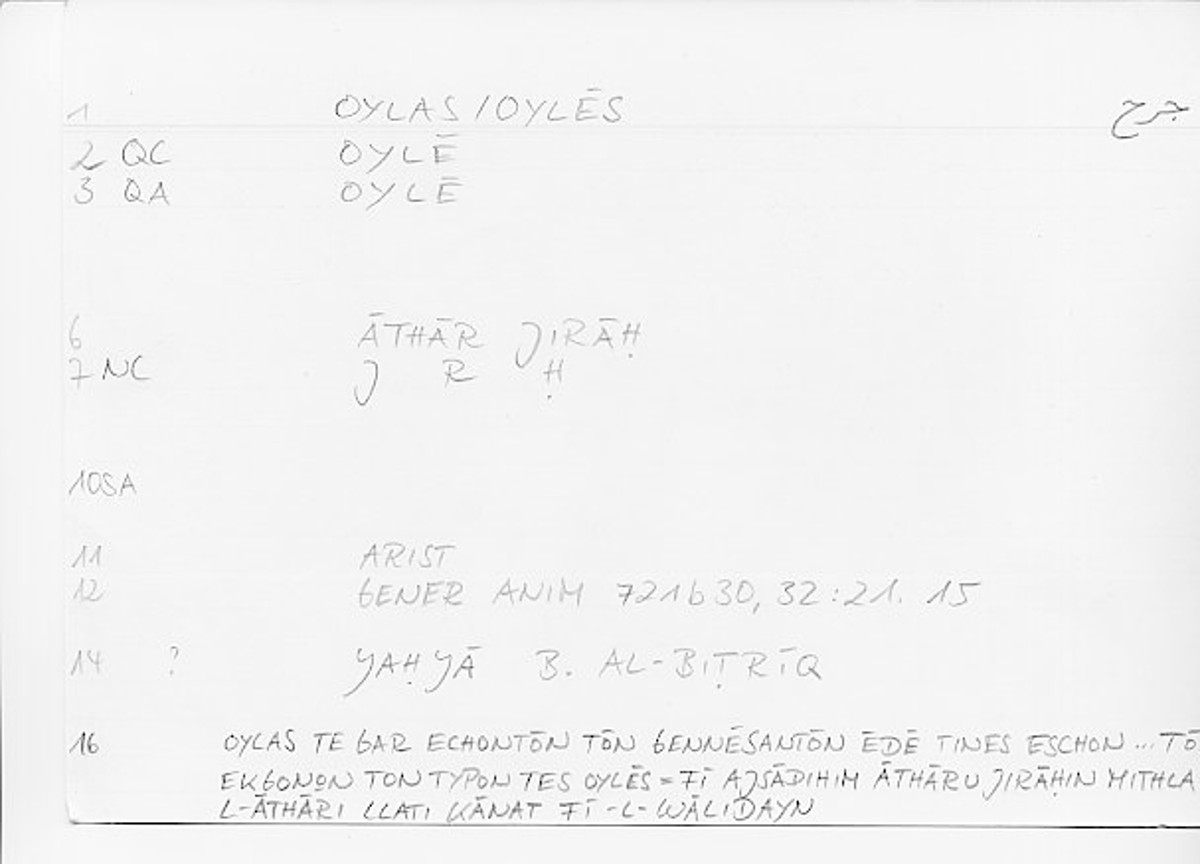 1 OYLAS/OYLĒS جرح
2 QC OYLĒ
3 QA OYLĒ
6 ĀTHĀR JIRĀḤ
7 NC J R Ḥ
10SA
11 ARIST
12 GENER ANIM 721b30, 32:21. 15
14 ? YAḤYĀ B. AL-BIṬRĪQ
16 OYLAS TE GAR ECHONTŌN TŌN GENNĒSANTŌN ĒDĒ TINES ESCHON ... TŌ
EKGONŌN TON TYPON TES OYLĒS = FĪ AJSĀDIHIM ĀTHĀRU JIRĀḤIN MITHLA
L-ĀTHĀRI LLATI KĀNAT FĪ-L-WĀLIDAYN